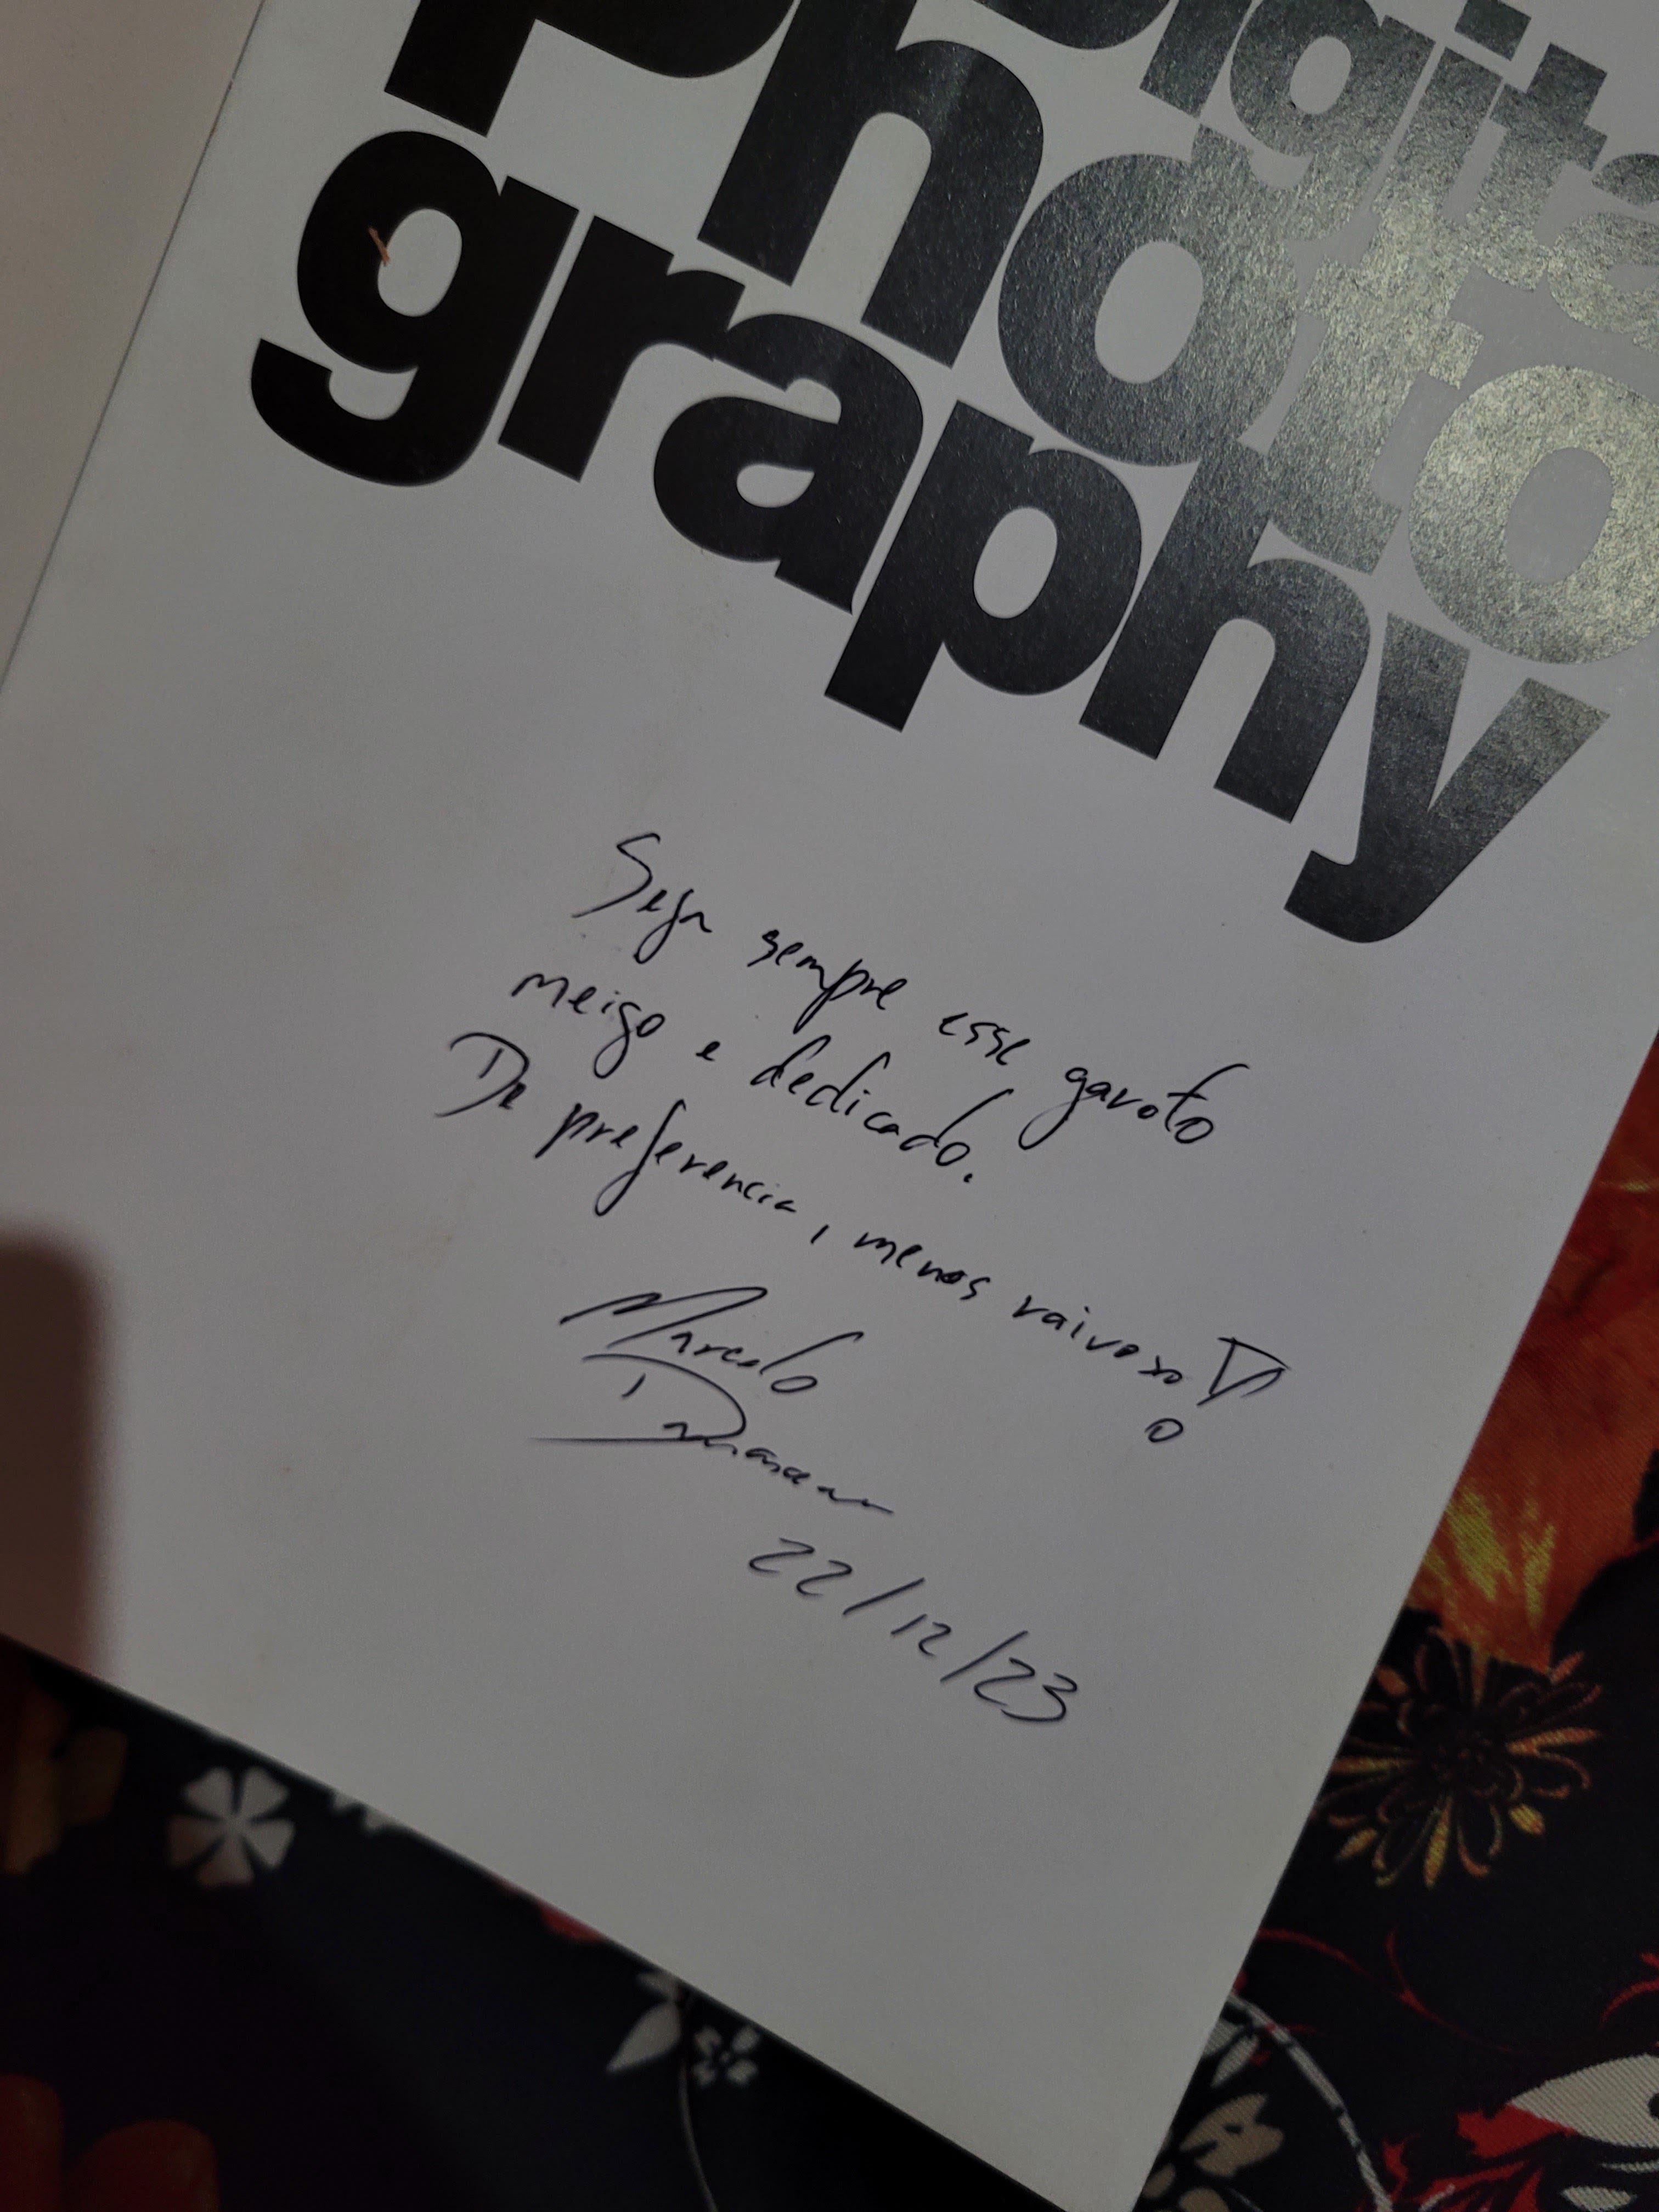 Digita
Photo
graphy
Seja sempre esse garoto
meigo e dedicado.
De preferencia, menos raivoso!
Marcelo
22/12/23